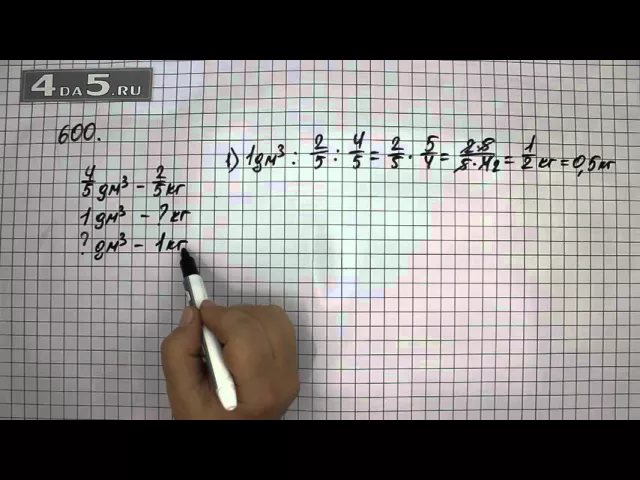 4DA5.RU
600.
4/5 дм³ – 2/5 кг
1 дм³ – ? кг
? дм³ – 1 кг
1) 1 дм³ : 2/5 : 4/5 = 2/5 · 5/4 = 2·5/5·4 2 = 1/2 кг = 0,5 кг